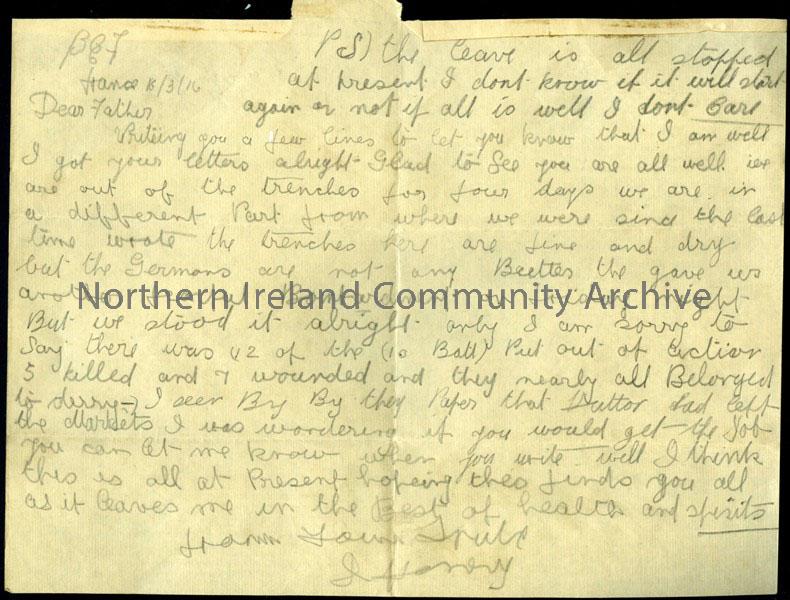 BEF
France 18/3/16
Dear Father
PS) the leave is all stopped
at Present I dont know if it will start
again or not if all is well I dont Care
Writing you a few lines to let you know that I am well
I got your letters alright Glad to See you are all well. we
are out of the trenches for four days we are in
a different Part from where we were since the last
time wrote the trenches here are fine and dry
but the Germans are not any Beetter the gave us
night
Northern Ireland Community Archive
But we stood it alright only I am sorry to
Say there was 12 of the (10 Batt) Put out of action
5 killed and 7 wounded and they nearly all Belonged
to derry I seen By By they Paper that had left
the Markets I was wondering if you would get the Job
you can let me know when you write well I think
this is all at Present hopeing thes finds you all
as it leaves me in the Best of health and spirits
from Your
J